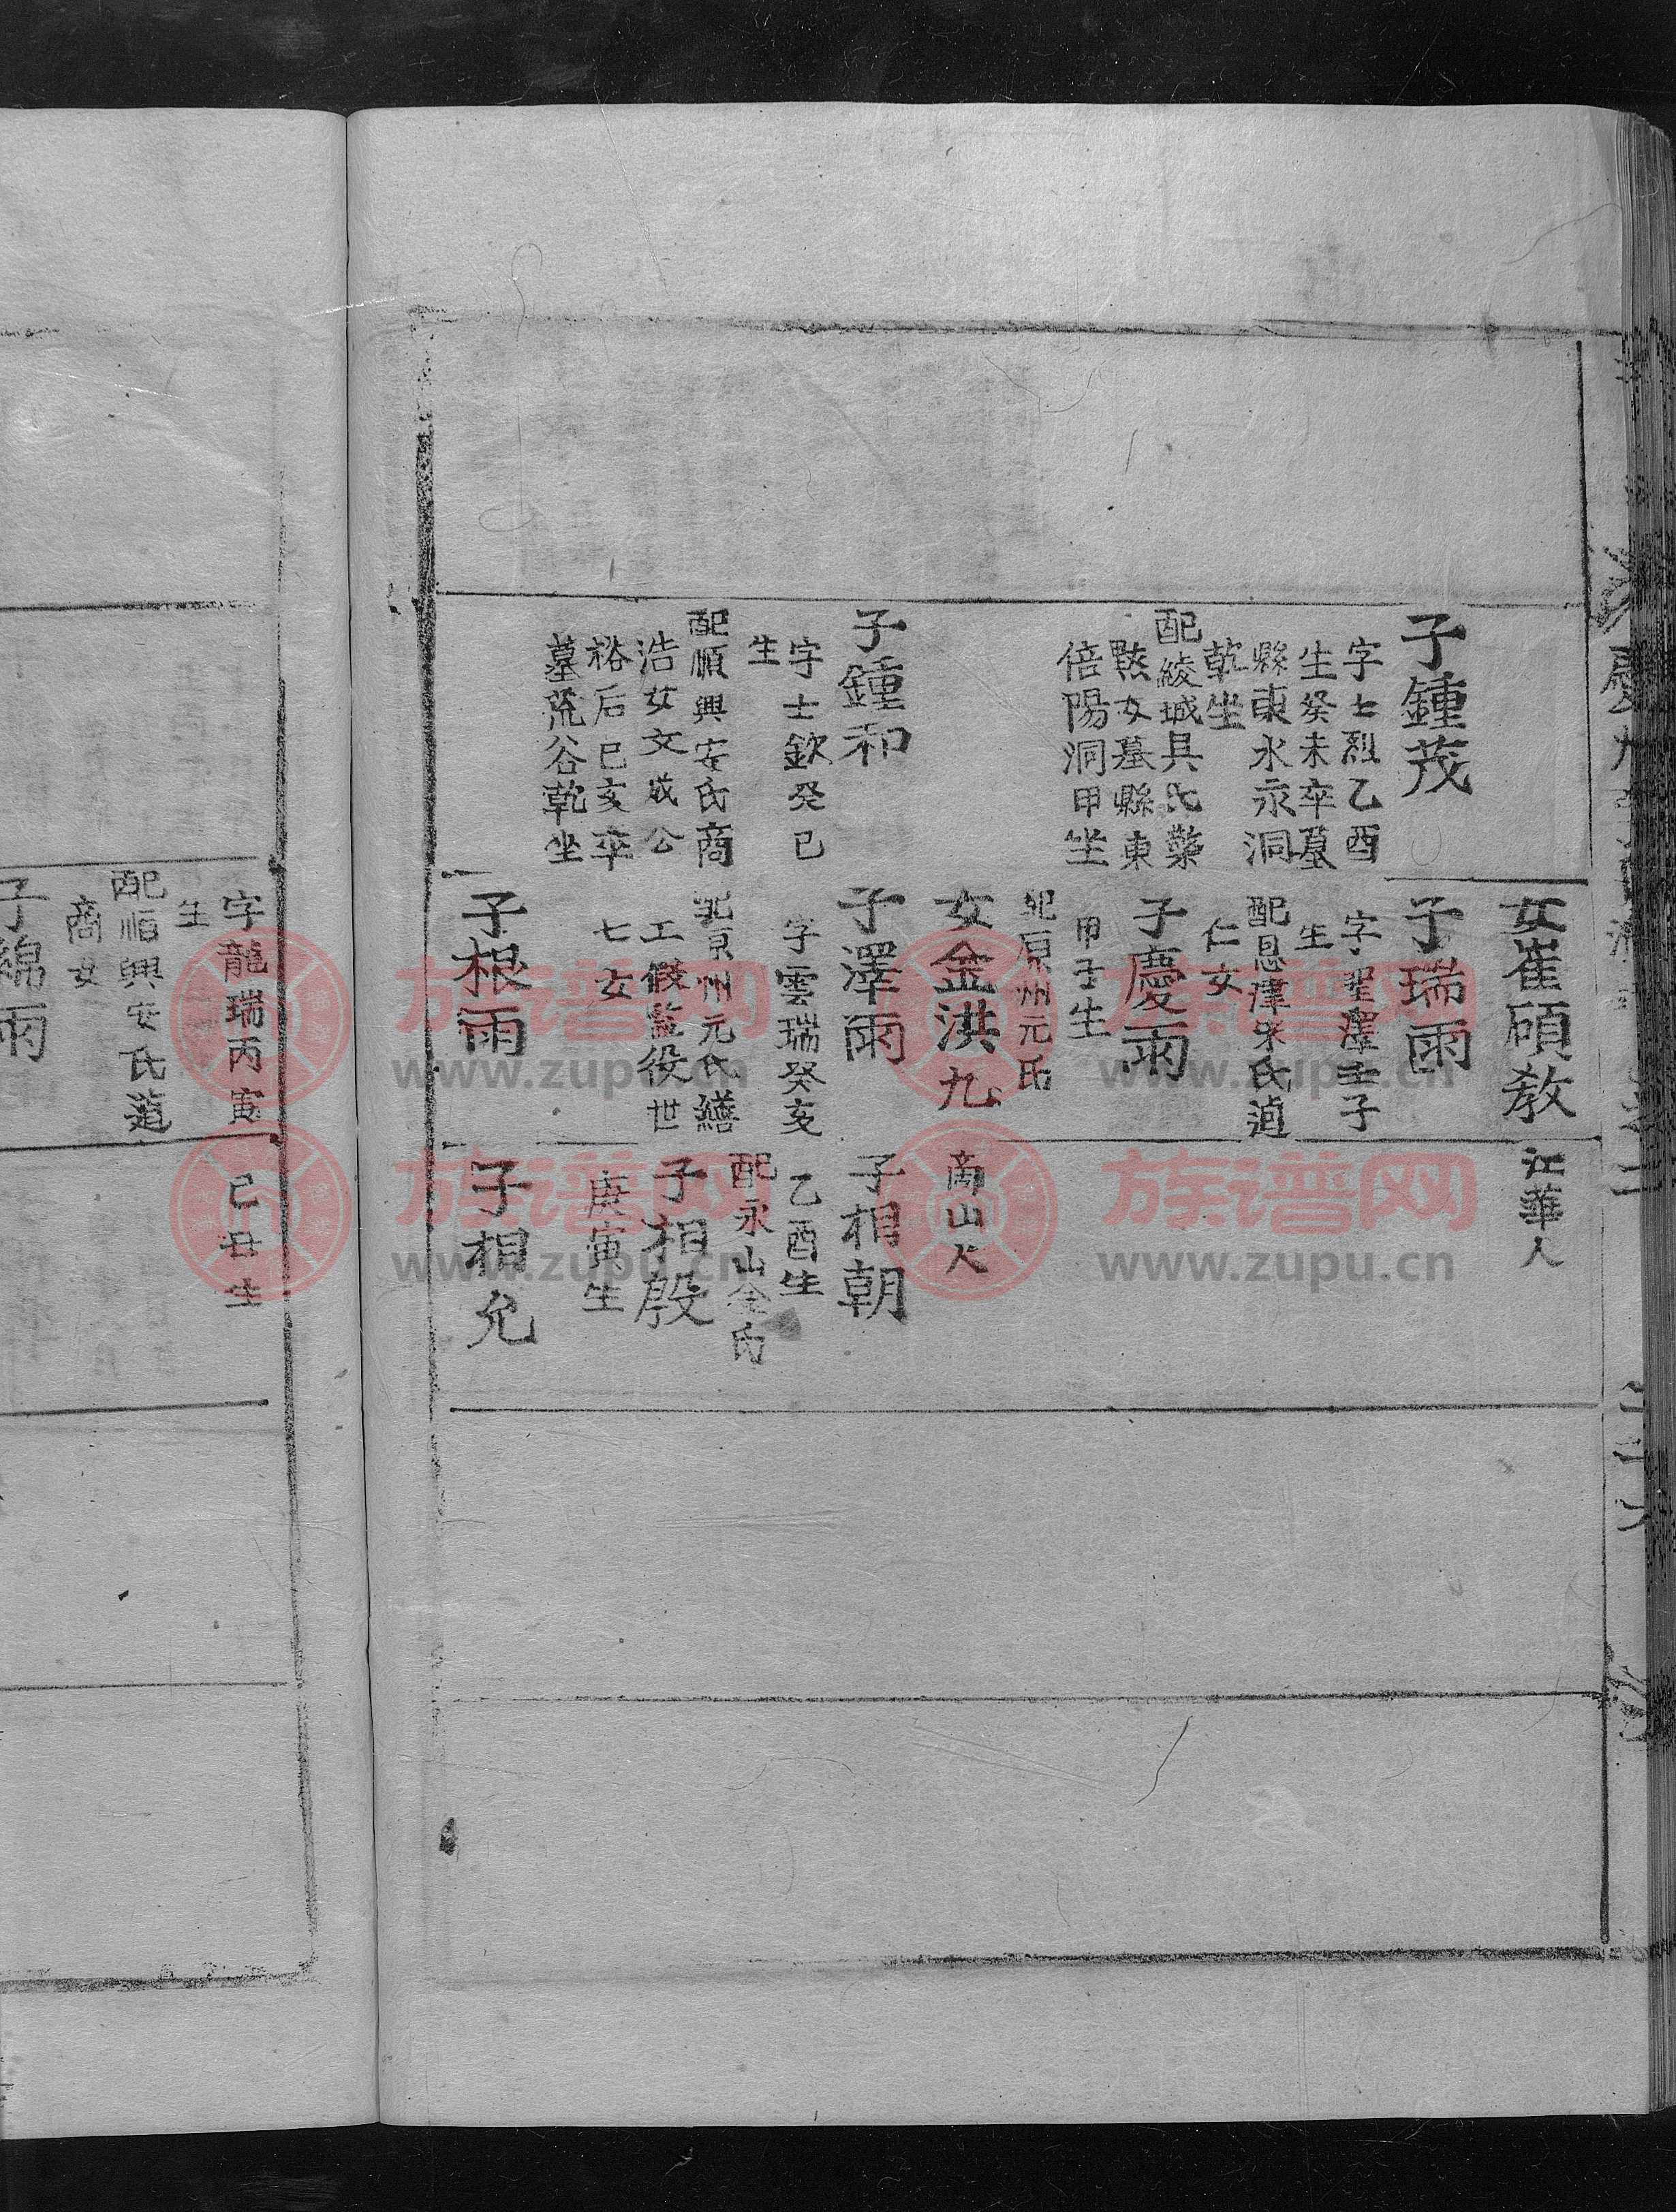 子鍾茂
字士烈乙酉
生癸未卒墓
縣東水永洞
乾坐
配綾城具氏榮
黙女墓縣東
倍陽洞甲坐
子鍾和
字士欽癸巳
生
配順興安氏商
浩女文成公
裕后己亥卒
墓荒谷乾坐
女崔碩教
子瑞雨
字聖澤壬子
生
配恩津宋氏
仁女
子慶雨
甲壬生
配原州元氏
女金洪九
子澤雨
字雲瑞癸亥
配原州元氏繕
工假監役世
七女
子根雨
江華人
商山人
子相朝
乙酉生
配永山金氏
子相殷
庚寅生
子相允
字龍瑞丙寅
生
配順興安氏
商女
子綿雨
己丑生
族谱网
www.zupu.cn
族谱网
www.zupu.cn
族谱网
www.zupu.cn
族谱网
www.zupu.cn